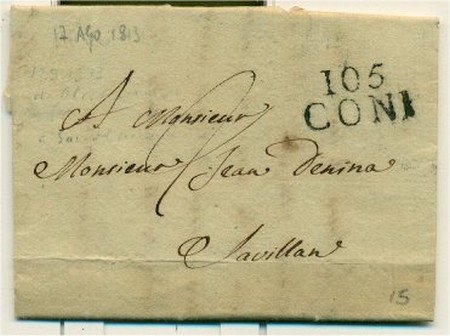 17 AGO 1813
105
CONI
A Monsieur
Monsieur Jean Denina
Savillan
15